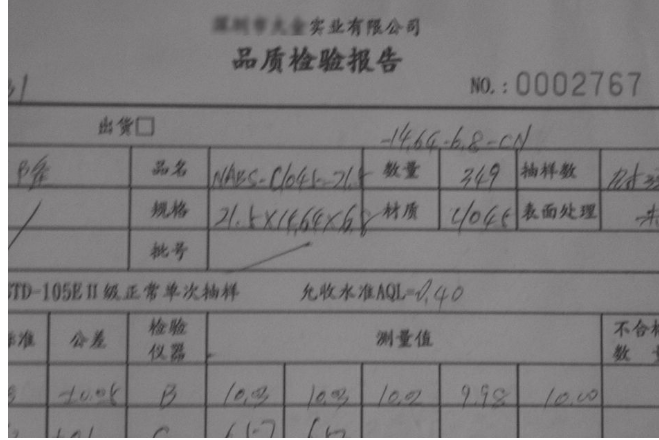 实业有限公司
品质检验报告
NO.: 0002767
出货□
-14.64-6.8-CN
品名 NABS-C1045-21.5 数量 349 抽样数
规格 21.5×14.64×6.8 材质 C1045 表面处理
批号
STD-105EⅡ级正常单次抽样 允收水准AQL=0.40
标准 公差 检验仪器 测量值 不合格数量
±0.05 B 10.03 10.03 10.02 9.98 10.00